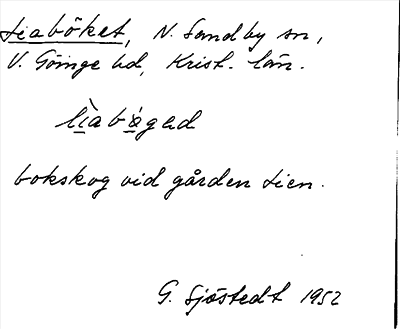 Liaböket, N. Sandby sn,
V. Göinge hd, Krist. län.
lìabǿgəd
bokskog vid gården Lien.
G. Sjöstedt 1952